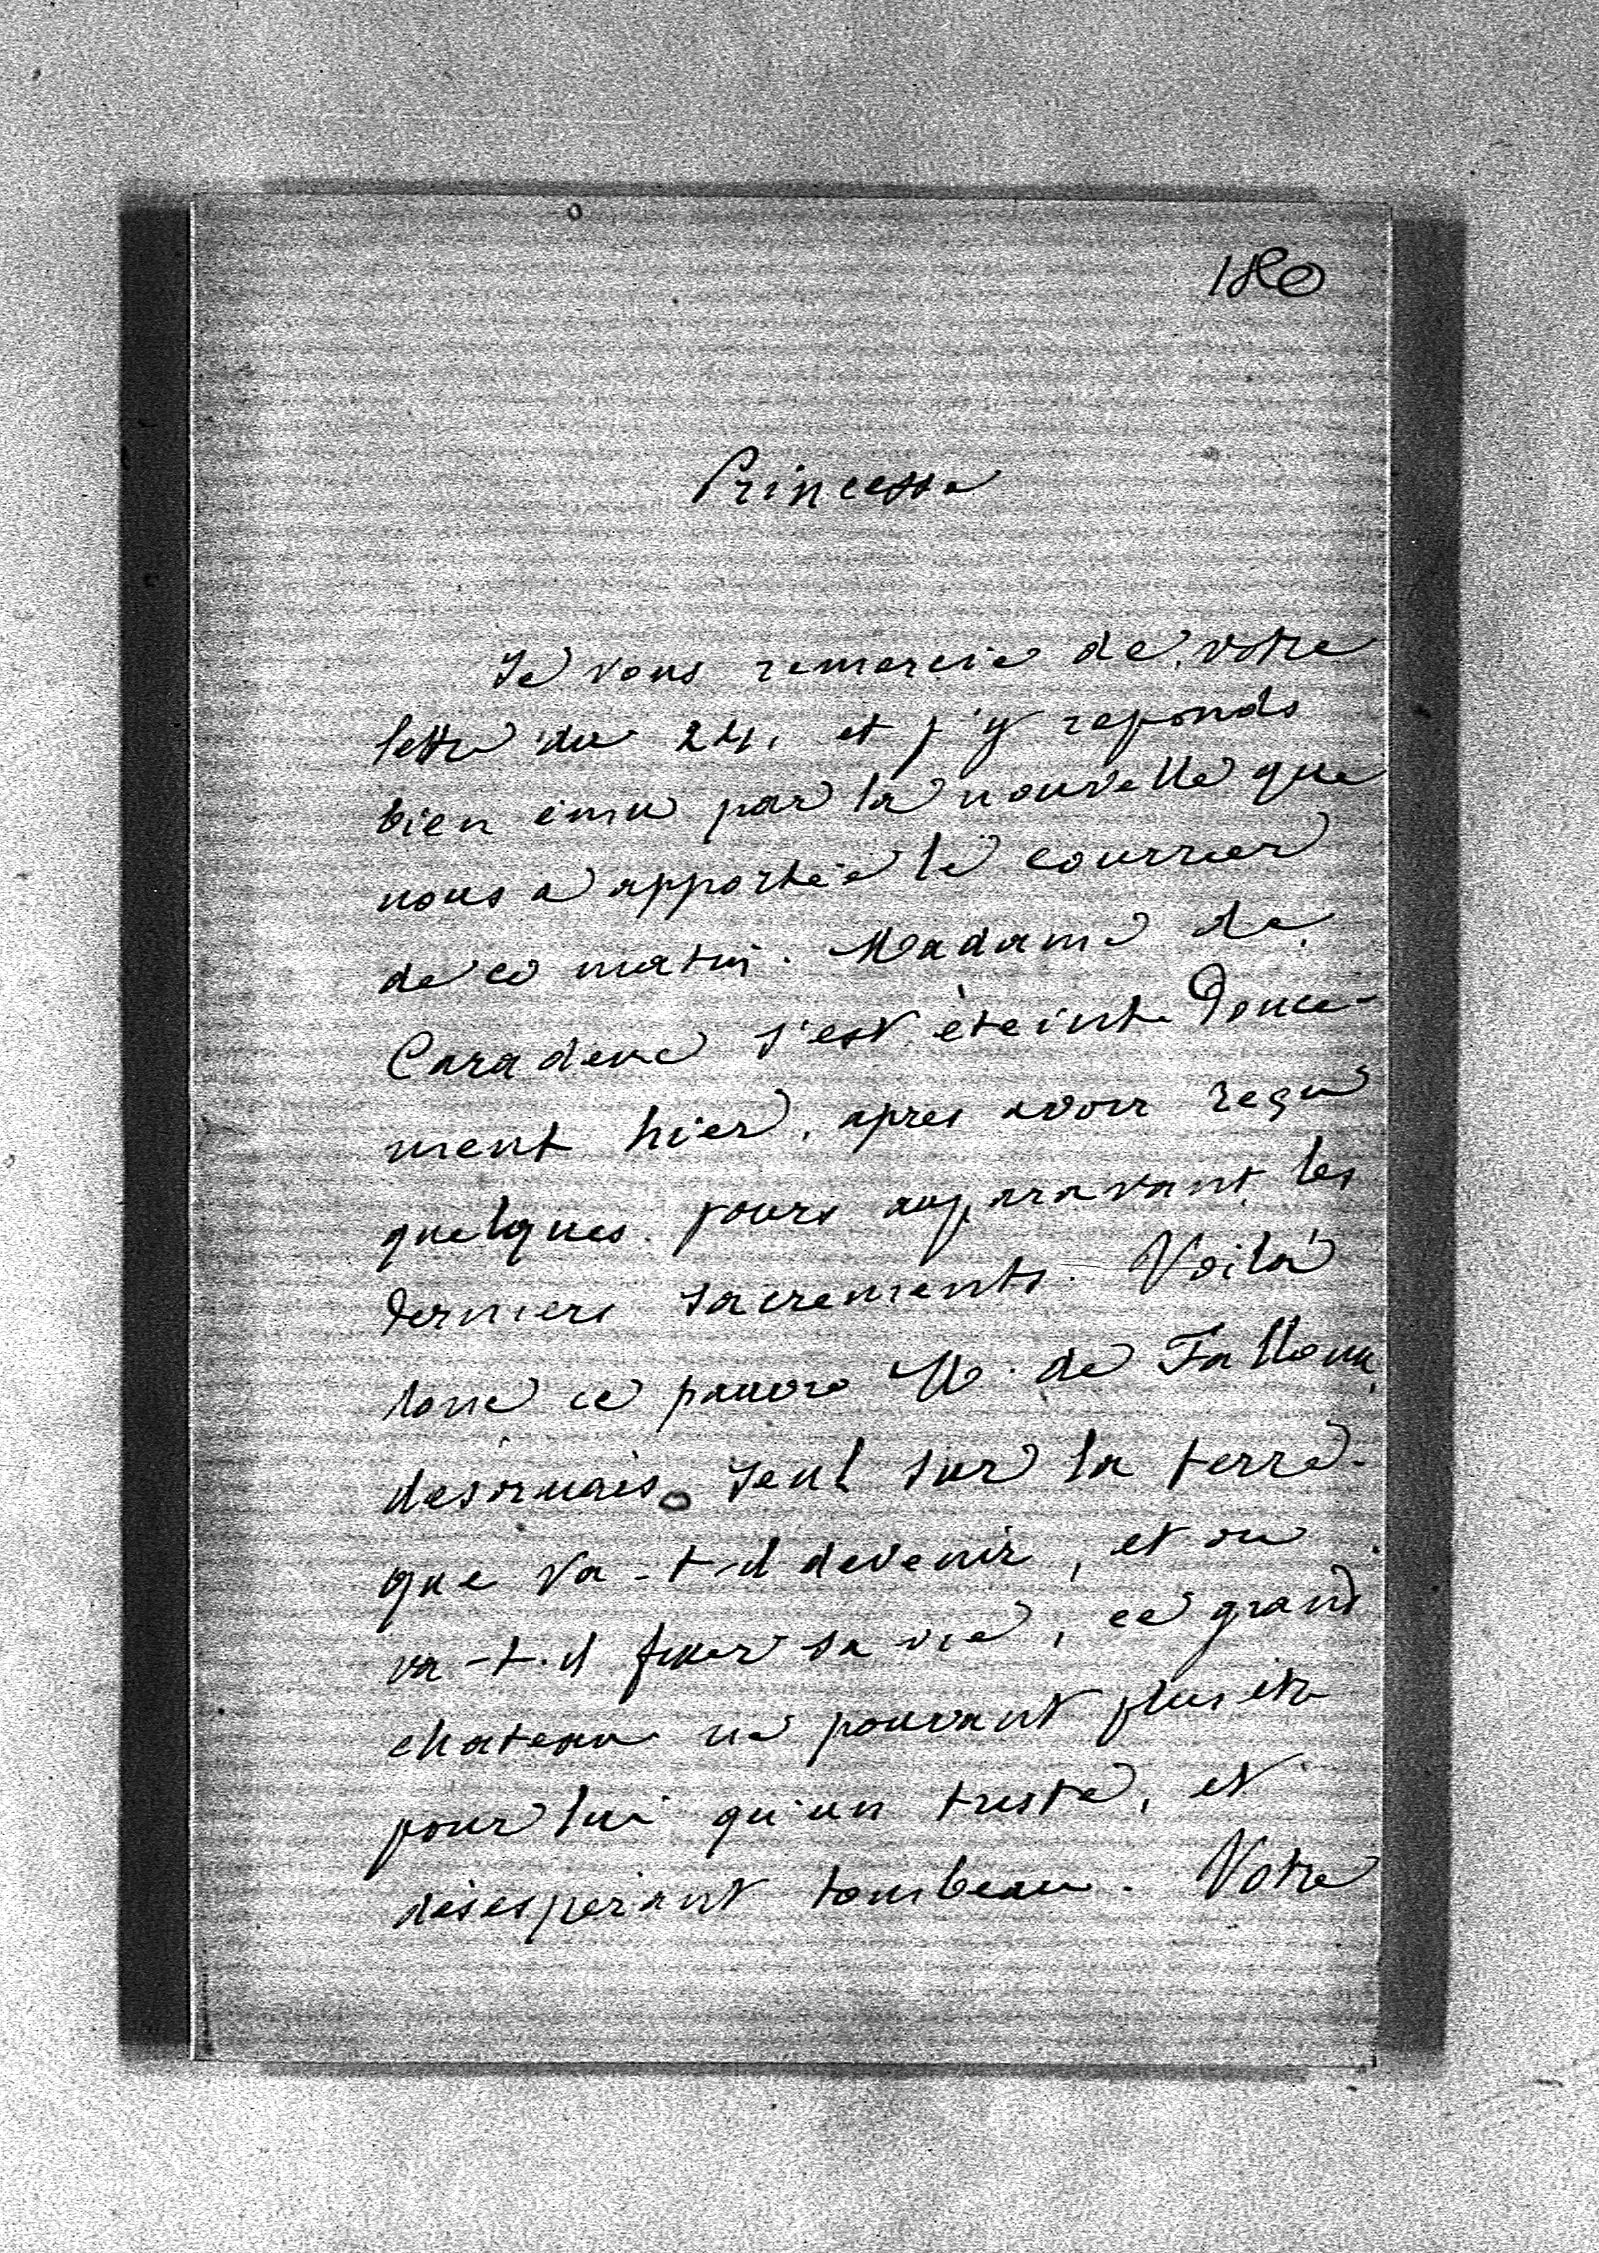 180
Princesse
Je vous remercie de votre
lettre du 24, et j'y reponds
bien ému par la nouvelle que
nous a apportée le courrier
de ce matin. Madame de
Caradeuc s'est éteinte douce-
ment hier, apres avoir reçu
quelques jours auparavant les
derniers sacrements. Voilà
donc ce pauvre M. de Falloux
desormais seul sur la terre.
que va-t-il devenir, et ou
va-t-il fixer sa vie, ce grand
chateau ne pouvant plus être
pour lui qu'un triste, et
désespérant tombeau. Votre